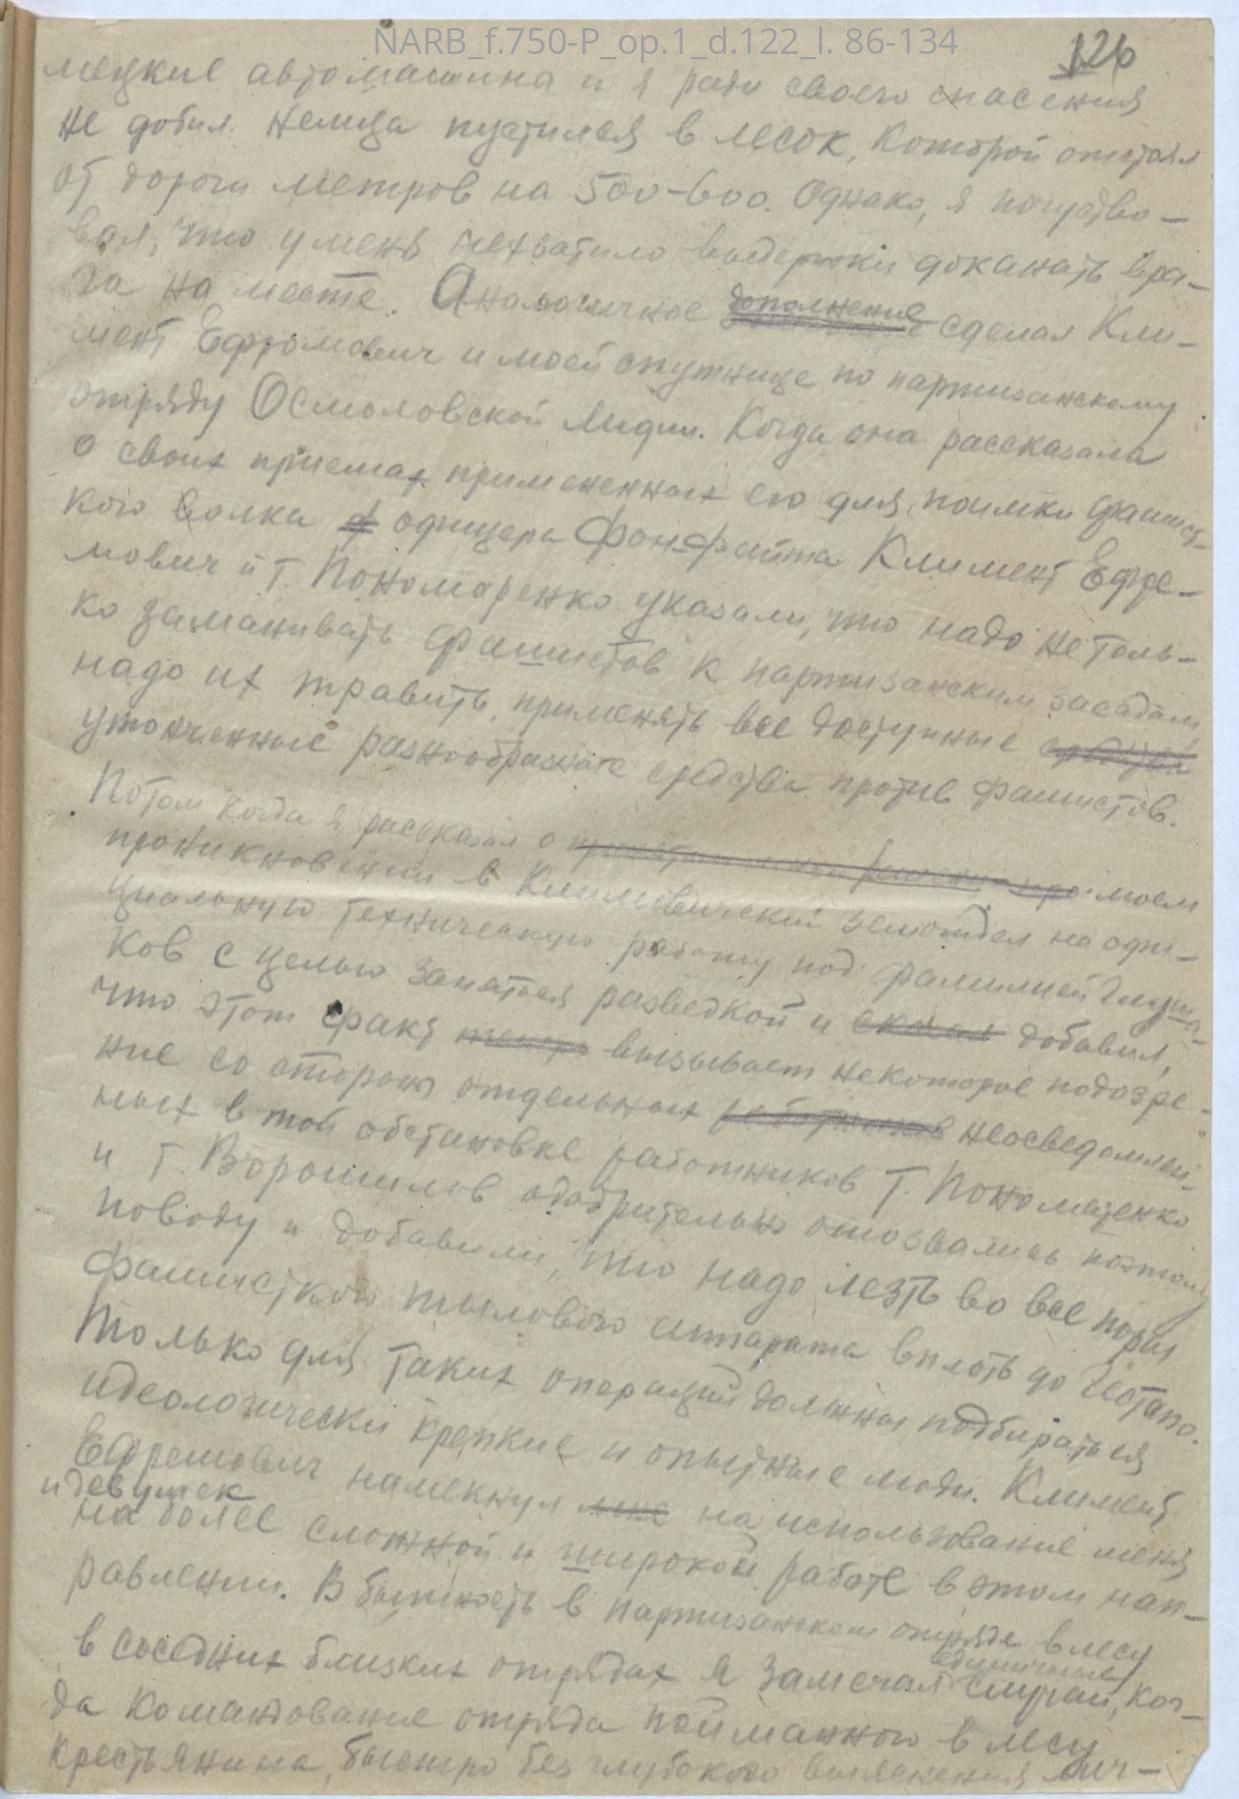 NARB_f.750-P_op.1_d.122_l. 86-134
126
мецкие автомашина и я ради своего спасения
не добил немца пустился в лесок, которой отстоял
от дороги метров на 500-600. Однако, я почуство-
вал, что у меня нехватило выдержки доканать вра-
га на месте. Аналогичное дополнение сделал Кли-
мент Ефромович и моей спутнице по партизанскому
отряду Осмоловской Лидии. Когда она рассказала
о своих приемах примененных ею для поимки фашист-
кого волка офицера Фонфайта Климент Ефре-
мович и т. Пономаренко указали, что надо не толь-
ко заманивать фашистов к партизанским засадам,
надо их травить, применять все доступные средства
утонченные разнообразные средства против фашистов.
Потом когда я рассказал о моем
проникновении в Климовичский земотдел на офи-
циальную техническую работу под фамилией Глуша-
ков с целью заняться разведкой и сказал добавил,
что этот факт теперь вызывает некоторое подозре-
ние со стороны отдельных работников неосведомлен-
ных в той обстановке работников т. Пономаренко
и т. Ворошилов одобрительно отозвались поэтому
поводу и добавили, что надо лезть во все поры
фашисткого тылового аппарата вплоть до Гестапо.
Только для таких операций должны подбираться
идеологически крепкие и опытные люди. Климент
Ефремович намекнул мне на использование меня
и девушек
на более сложной и широкой работе в этом нап-
равлении. В бытность в партизанском отряде в лесу
в соседних близких отрядах я замечал единичные случаи, ког-
да командование отряда пойманного в лесу
крестьянина, быстро без глубокого выяснения лич-